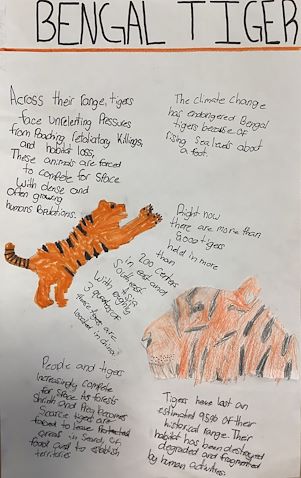 BENGAL TIGER
Across their range, tigers
face unrelenting Pressures
from Poaching, retaliatory Killings,
and habitat loss,
These animals are forced
to compete for space
with dense and
often growing
humans Populations.
The climate change
has endangered Bengal
tigers because of
rising sea levels about
a foot.
Right now
there are more than
8000 tigers
held in more
than
200 Centers
in east and
South east
Asia
With
3 quarters of
these tigers are
located in china
People and tigers
increasingly compete
for space. As forests
Shrink and Prey becomes
Scarce tigers are
forced to leave Protected
areas in search of
food and to establish
territories
Tigers have lost an
estimated 95% of their
historical range. Their
habitat has been destroyed
degraded and fragmented
by human activities.